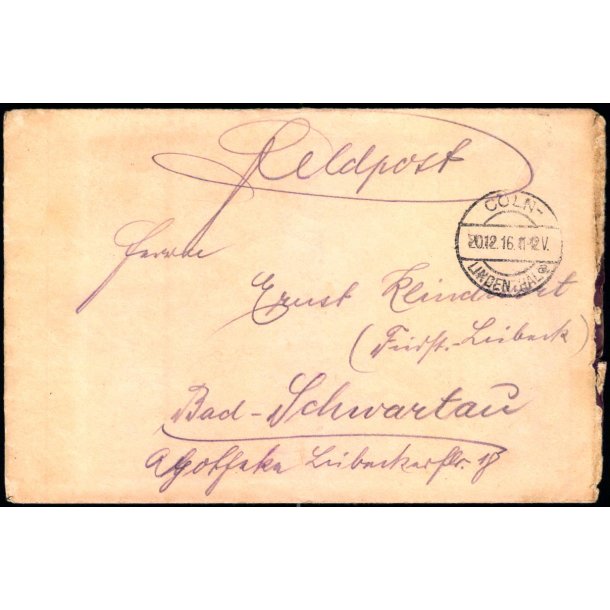 Feldpost
CÖLN-
20.12.16. 11-12 V.
LINDENTHAL
Herrn
Ernst
(Fürst. Lübeck)
Bad-Schwartau
Apotheke Lübeckerstr. 18